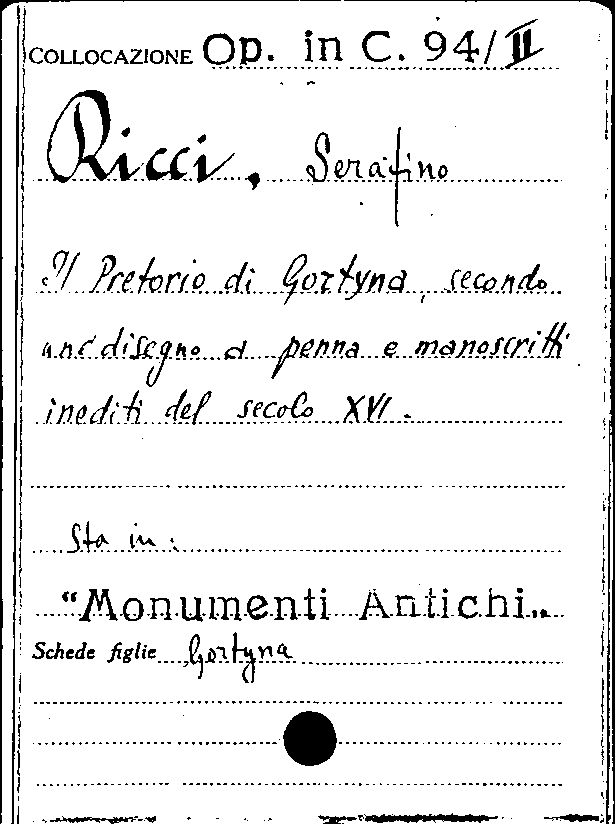 COLLOCAZIONE Op. in C. 94/II
Ricci, Serafino
Il Pretorio di Gortyna, secondo
disegno a penna e manoscritti
inediti del secolo XVI.
Sta in:
"Monumenti Antichi„
Schede figlie Gortyna